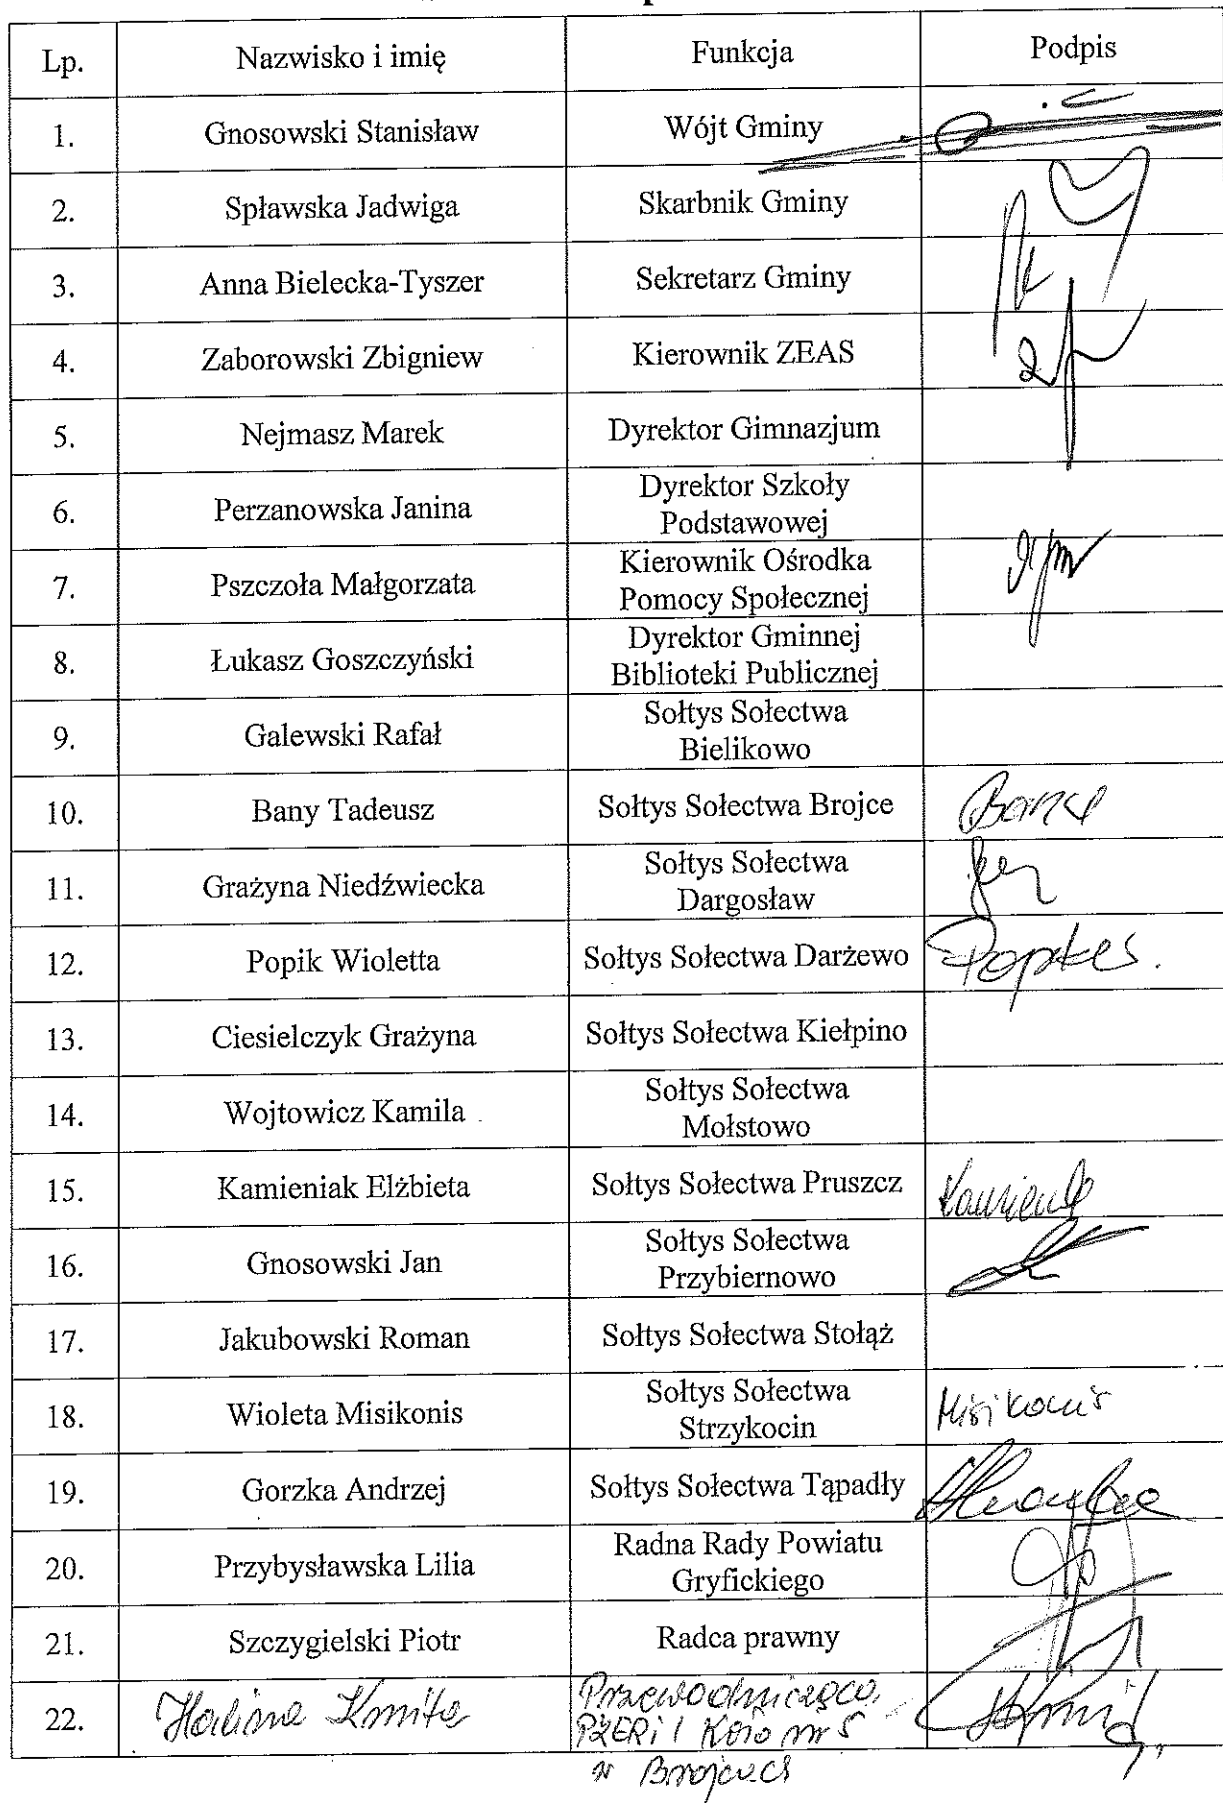 Lp. Nazwisko i imię Funkcja Podpis
1. Gnosowski Stanisław Wójt Gminy
2. Spławska Jadwiga Skarbnik Gminy
3. Anna Bielecka-Tyszer Sekretarz Gminy
4. Zaborowski Zbigniew Kierownik ZEAS
5. Nejmasz Marek Dyrektor Gimnazjum
6. Perzanowska Janina Dyrektor Szkoły
Podstawowej
7. Pszczoła Małgorzata Kierownik Ośrodka
Pomocy Społecznej
8. Łukasz Goszczyński Dyrektor Gminnej
Biblioteki Publicznej
9. Galewski Rafał Sołtys Sołectwa
Bielikowo
10. Bany Tadeusz Sołtys Sołectwa Brojce
11. Grażyna Niedźwiecka Sołtys Sołectwa
Dargosław
12. Popik Wioletta Sołtys Sołectwa Darżewo
13. Ciesielczyk Grażyna Sołtys Sołectwa Kiełpino
14. Wojtowicz Kamila Sołtys Sołectwa
Mołstowo
15. Kamieniak Elżbieta Sołtys Sołectwa Pruszcz
16. Gnosowski Jan Sołtys Sołectwa
Przybiernowo
17. Jakubowski Roman Sołtys Sołectwa Stołąż
18. Wioleta Misikonis Sołtys Sołectwa
Strzykocin Misikonis
19. Gorzka Andrzej Sołtys Sołectwa Tąpadły
20. Przybysławska Lilia Radna Rady Powiatu
Gryfickiego
21. Szczygielski Piotr Radca prawny
22. Halina Kmita Przewodnicząca
PZERi I Koło nr 5
w Brojcach